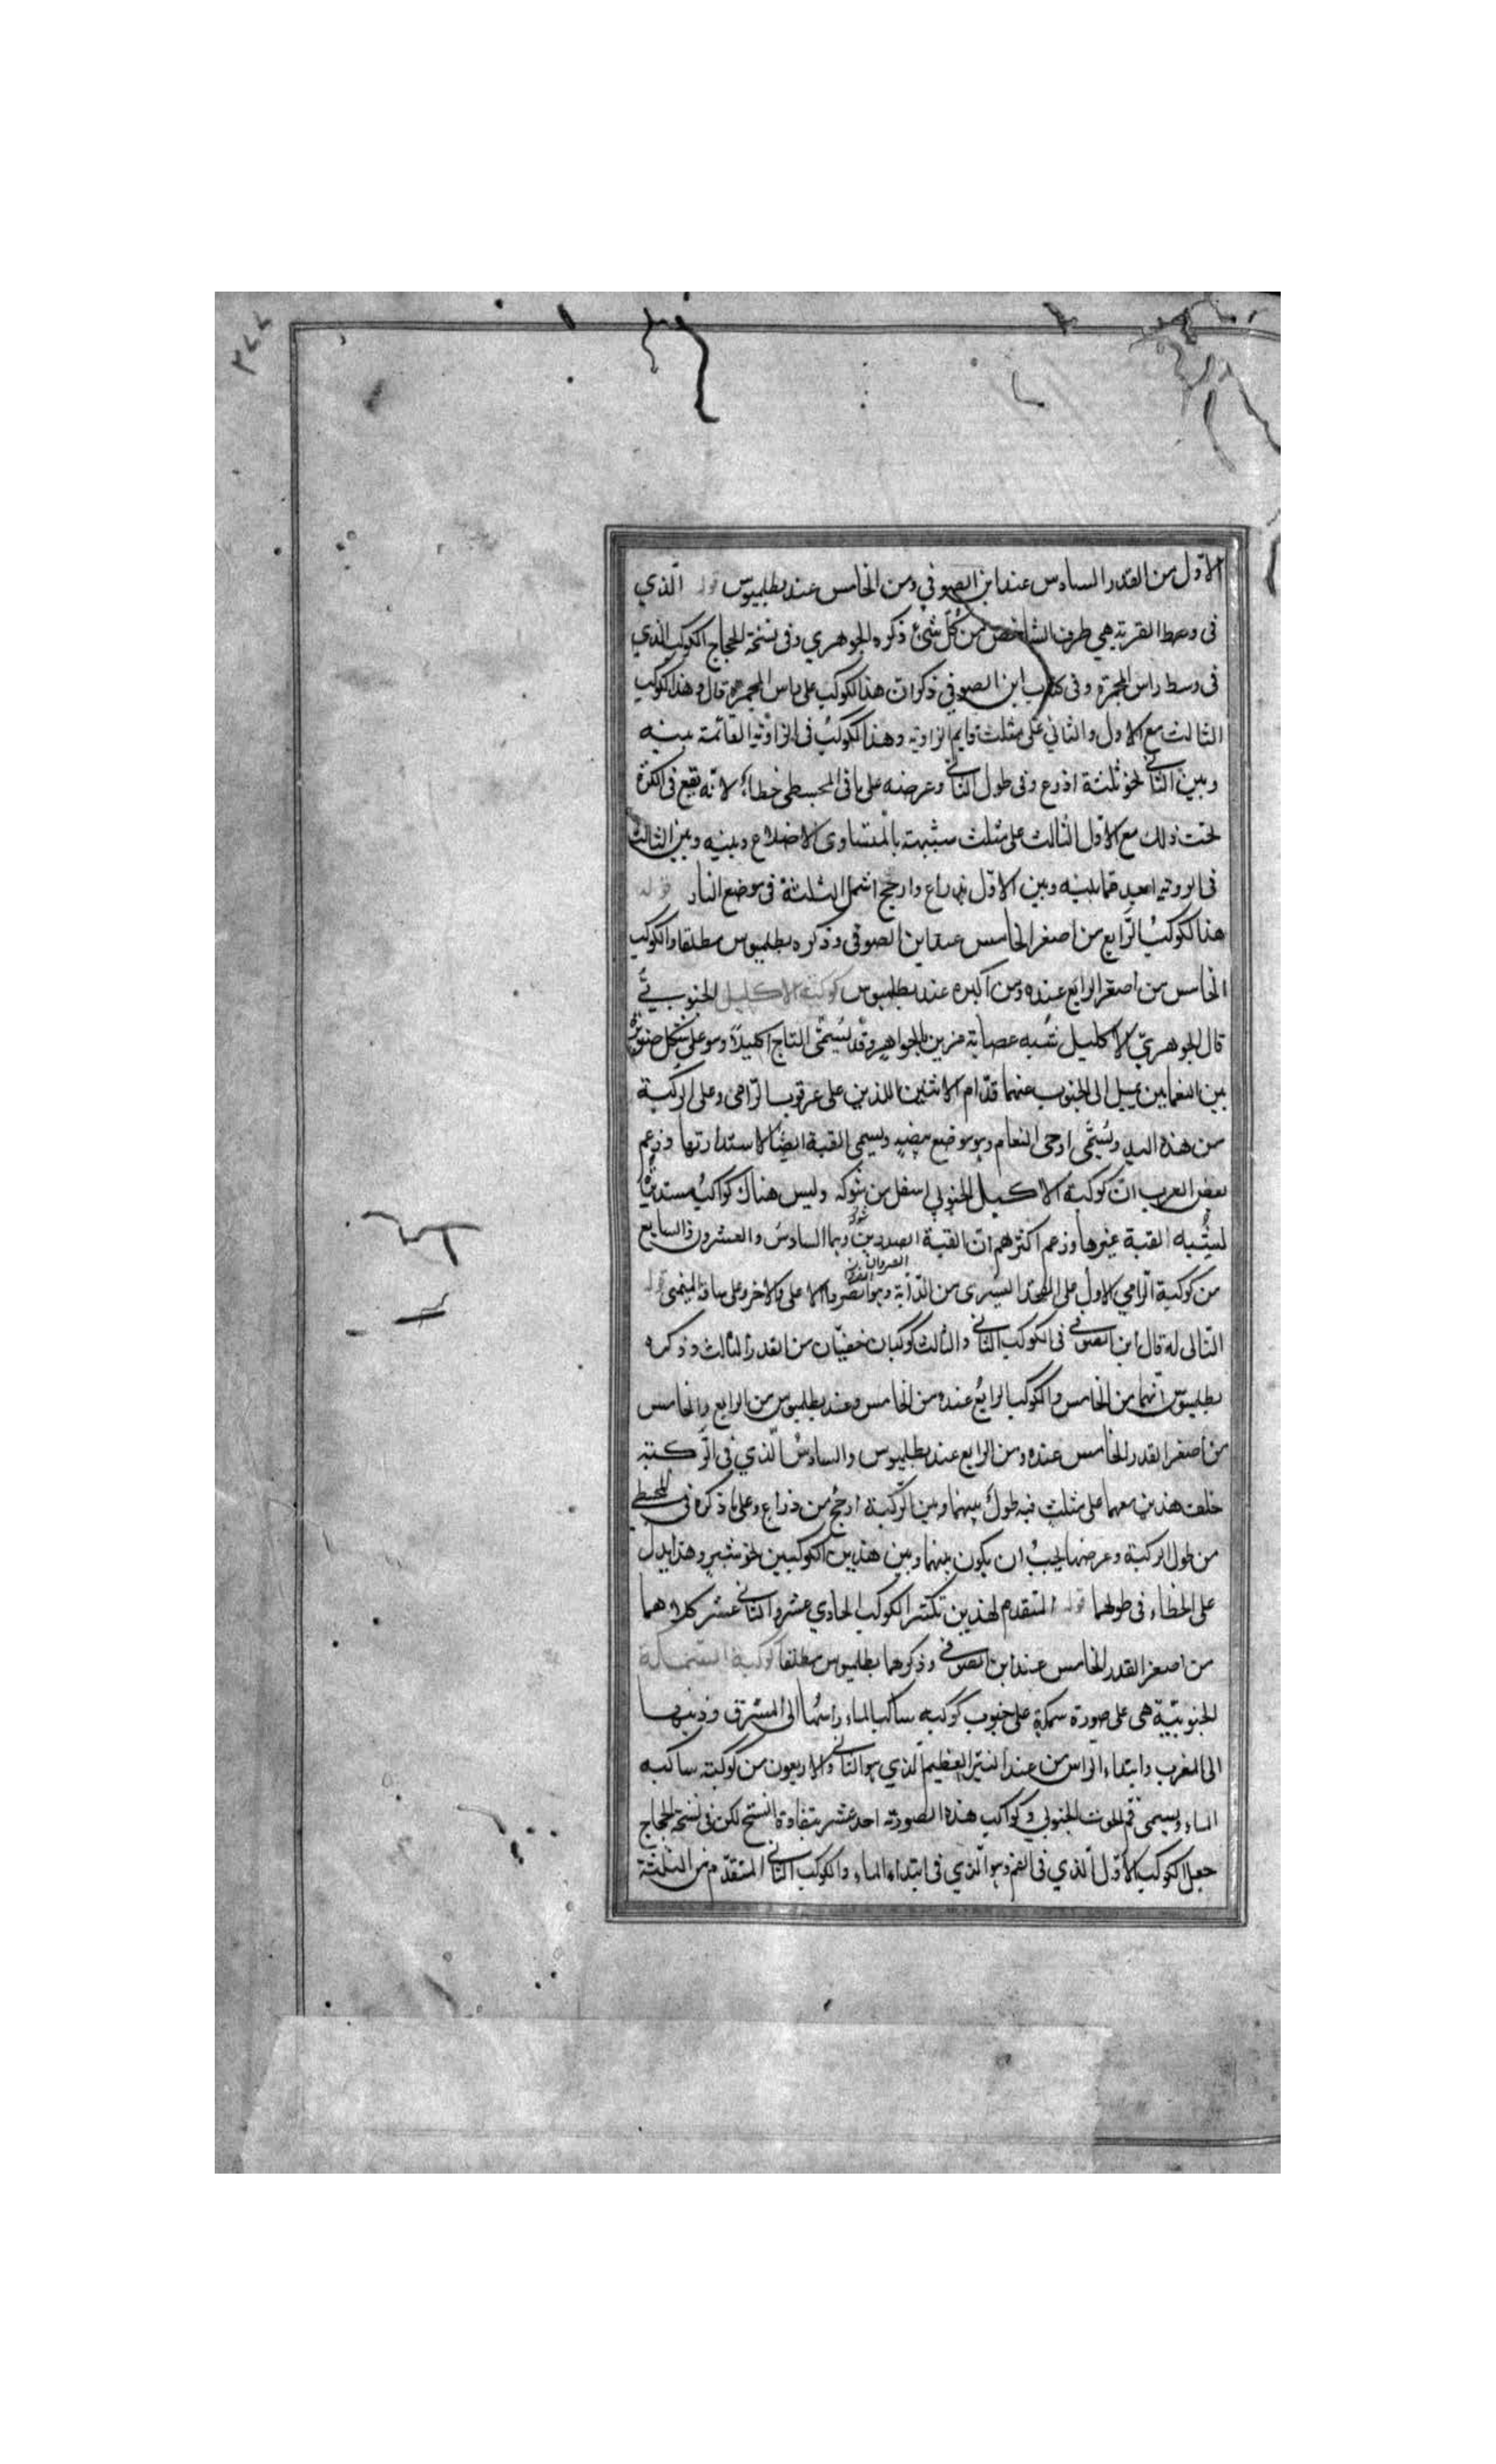 ٢٧٧
الاوّل من القدر السادس عند ابن الصوفي ومن الخامس عند بطلميوس قوله الّذي
فى وسط القربة هي طرف الشاخص من كلّ شئ ذكره الجوهري وفى نسخة الحجاج الكوكب الذي
فى وسط راس المجمرة وفى كتاب ابن الصوفي ذكر انّ هذا الكوكب على راس المجمرة قال وهذا الكوكب
الثالث مع الاول والثاني على مثلث قايم الزاوية وهذا الكوكب فى الزاوية القائمة بينه
وبين الثاني نحو ثلثة اذرع وفى طول الثاني وعرضه على ما فى المجسطى خطاء لانّه يقع فى الكرة
تحت ذلك مع الاوّل الثالث على مثلث شبيهة بالمتساوى الاضلاع وبينه وبين الثالث
فى الروية ابعد مما بينه وبين الاوّل ذراع وارجح اشمل الثلثة فى موضع النار قوله
هذا الكوكب الرّابع من اصغر الخامس عند ابن الصوفى وذكره بطلميوس مطلقا والكوكب
الخامس من اصغر الرابع عنده ومن اكبره عند بطلميوس كوكبة الاكليل الجنوبيّ
قال الجوهريّ الاكليل شبه عصابة مزين بالجواهر وقد يسمّى التاج اكليلاً وهو على شكل صنوبرة
بين النعامين يميل الى الجنوب عنهما قدّام الاثنين اللذين على عرقوب الرّامى وعلى الركبة
من هذه اليد ويسمّى ادحى النعام وهو موضع بيضه ويسمى القبة ايضا لاستدارتها وزعم
بعض العرب انّ كوكبة الاكليل الجنوبي اسفل من شوكه وليس هناك كواكب مستديرة
ليشبه القبة غيرها وزعم اكثرهم انّ القبة الصردين وهما السادس والعشرون والسابع
من كوكبة الرّامي الاول على الفخذ اليسرى من الدّابة وهو الصرد الاعلى والاخر على ساقه اليمنى قوله
التالى له قال ابن الصوفى فى الكوكب الثاني والثالث كوكبان خفيّان من القدر الثالث وذكره
بطلميوس انّهما من الخامس والكوكب الرابع عنده من الخامس وعند بطلميوس من الرابع والخامس
من اصغر القدر الخامس عنده ومن الرابع عند بطلميوس والسادس الّذي فى الرّكبة
خلف هذين معهما على مثلث فيه طول بينهما وبين الرّكبة ارجح من ذراع وعلى ما ذكره فى المجسطى
من طول الركبة وعرضها يجب ان يكون بينهما وبين هذين الكوكبين نحو شبر وهذا يدل
على الخطاء فى طولهما قوله المتقدم لهذين الكوكب الحادي عشر والثاني عشر كلاهما
من اصغر القدر الخامس عند ابن الصوفى وذكرهما بطلميوس مطلقا كوكبة السّمكة
الجنوبيّة هى على صورة سمكة على جنوب كوكبه ساكب الماء راسها الى المشرق وذنبها
الى المغرب وابتداء الراس من عند النير العظيم الّذي هو الثاني والاربعون من كوكبة ساكب
الماء ويسمى فم الحوت الجنوبي وكواكب هذه الصورة احد عشر بتفاوت النسخ لكن فى نسخة الحجاج
جعل الكوكب الاوّل الّذي فى الفم وهو الّذي فى ابتداء الماء والكوكب الثاني المتقدّم من الثلثة